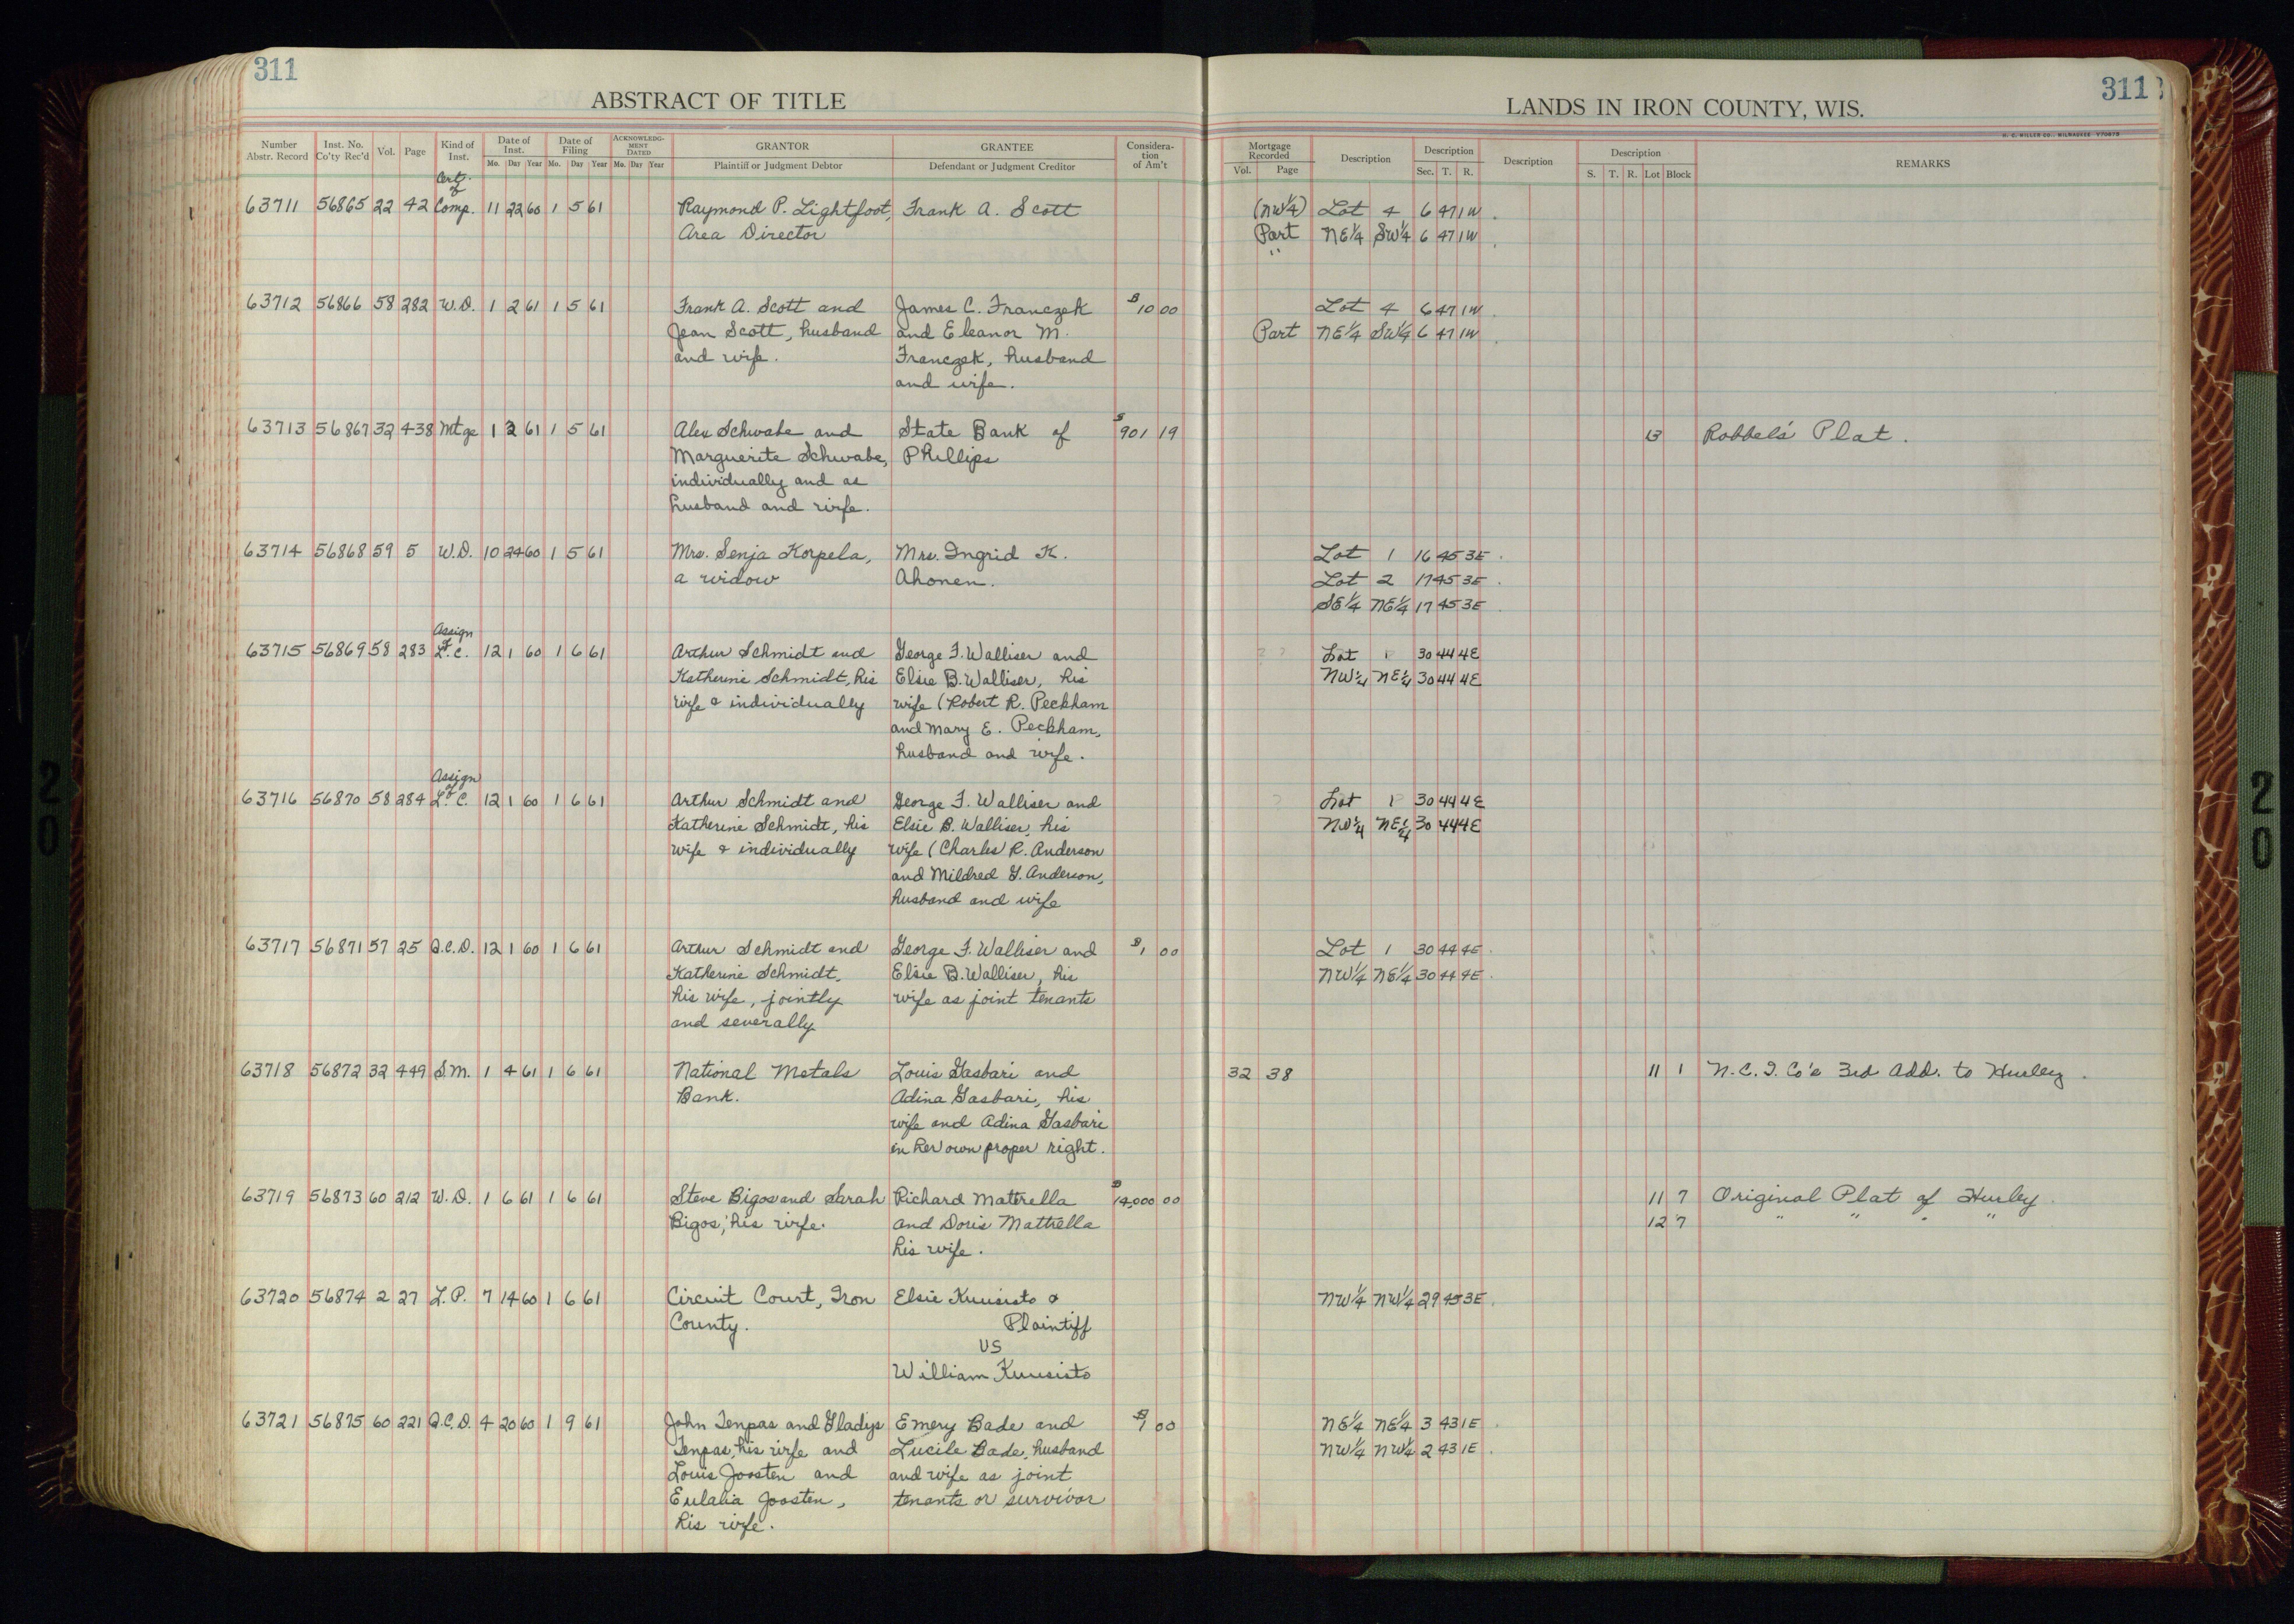 311
ABSTRACT OF TITLE
311
LANDS IN IRON COUNTY, WIS.
H. C. MILLER CO., MILWAUKEE
Number Abstr. Record | Inst. No. Co'ty Rec'd | Vol. | Page | Kind of Inst. | Date of Inst. Mo. Day Year | Date of Filing Mo. Day Year | ACKNOWLEDGMENT DATED Mo. Day Year | GRANTOR Plaintiff or Judgment Debtor | GRANTEE Defendant or Judgment Creditor | Consideration of Am't | Mortgage Recorded Vol. Page | Description | Description Sec. T. R. | Description | Description S. T. R. Lot Block | REMARKS
Cert.
of
63711 56865 22 42 Comp. 11 22 60 1 5 61 Raymond P. Lightfoot, Frank A. Scott (NW¼) Lot 4 6 47 1W
Area Director Part NE¼ SW¼ 6 47 1W
"
63712 56866 58 282 W.D. 1 2 61 1 5 61 Frank A. Scott and James C. Franczek $10 00 Lot 4 6 47 1W
Jean Scott, husband and Eleanor M. Part NE¼ SW¼ 6 47 1W
and wife. Franczek, husband
and wife.
63713 56867 32 438 Mtge 1 3 61 1 5 61 Alex Schwabe and State Bank of $901 19 13 Robbel's Plat.
Marguerite Schwabe, Phillips
individually and as
husband and wife.
63714 56868 59 5 W.D. 10 24 60 1 5 61 Mrs. Senja Korpela, Mrs. Ingrid K. Lot 1 16 45 3E
a widow Ahonen. Lot 2 17 45 3E
SE¼ NE¼ 17 45 3E
Assign
of
63715 56869 58 283 L.C. 12 1 60 1 6 61 Arthur Schmidt and George F. Walliser and Lot 1 30 44 4E
Katherine Schmidt, his Elsie B. Walliser, his NW¼ NE¼ 30 44 4E
wife & individually wife (Robert R. Peckham
and Mary E. Peckham,
husband and wife.
Assign
of
63716 56870 58 284 L.C. 12 1 60 1 6 61 Arthur Schmidt and George F. Walliser and Lot 1 30 44 4E
Katherine Schmidt, his Elsie B. Walliser, his NW¼ NE¼ 30 44 4E
wife & individually wife (Charles R. Anderson
and Mildred G. Anderson,
husband and wife
63717 56871 57 25 Q.C.D. 12 1 60 1 6 61 Arthur Schmidt and George F. Walliser and $1 00 Lot 1 30 44 4E
Katherine Schmidt, Elsie B. Walliser, his NW¼ NE¼ 30 44 4E
his wife, jointly wife as joint tenants
and severally
63718 56872 32 449 S.M. 1 4 61 1 6 61 National Metals Louis Gasbari and 32 38 11 1 N.C.I. Co's 3rd Add. to Hurley.
Bank. Adina Gasbari, his
wife and Adina Gasbari
in her own proper right.
63719 56873 60 212 W.D. 1 6 61 1 6 61 Steve Bigos and Sarah Richard Mattrella $14,000 00 11 7 Original Plat of Hurley
Bigos, his wife. and Doris Mattrella 12 7 " " " "
his wife.
63720 56874 2 27 L.P. 7 14 60 1 6 61 Circuit Court, Iron Elsie Kuusisto & NW¼ NW¼ 29 45 3E
County. Plaintiff
vs
William Kuusisto
63721 56875 60 221 Q.C.D. 4 20 60 1 9 61 John Tenpas and Gladys Emery Bade and $1 00 NE¼ NE¼ 3 43 1E
Tenpas, his wife and Lucile Bade, husband NW¼ NW¼ 2 43 1E
Louis Joosten and and wife as joint
Eulalia Joosten, tenants or survivor
his wife.
20
20